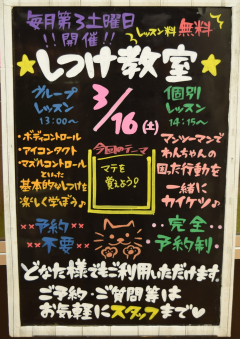 毎月第3土曜日
!!開催!!
レッスン料無料
★しつけ教室★
グループ
レッスン
13:00〜
3/16(土)
個別
レッスン
14:15〜
・ボディコントロール
・アイコンタクト
・マズルコントロール
といった
基本的なしつけを
楽しく学ぼう♪
今回のテーマ
マテを
覚えよう!
マンツーマンで
わんちゃんの
困った行動を
一緒に
カイケツ♪
※予約
不要※
※完全
予約制※
どなた様でもご利用いただけます。
ご予約・ご質問等は
お気軽にスタッフまで♥